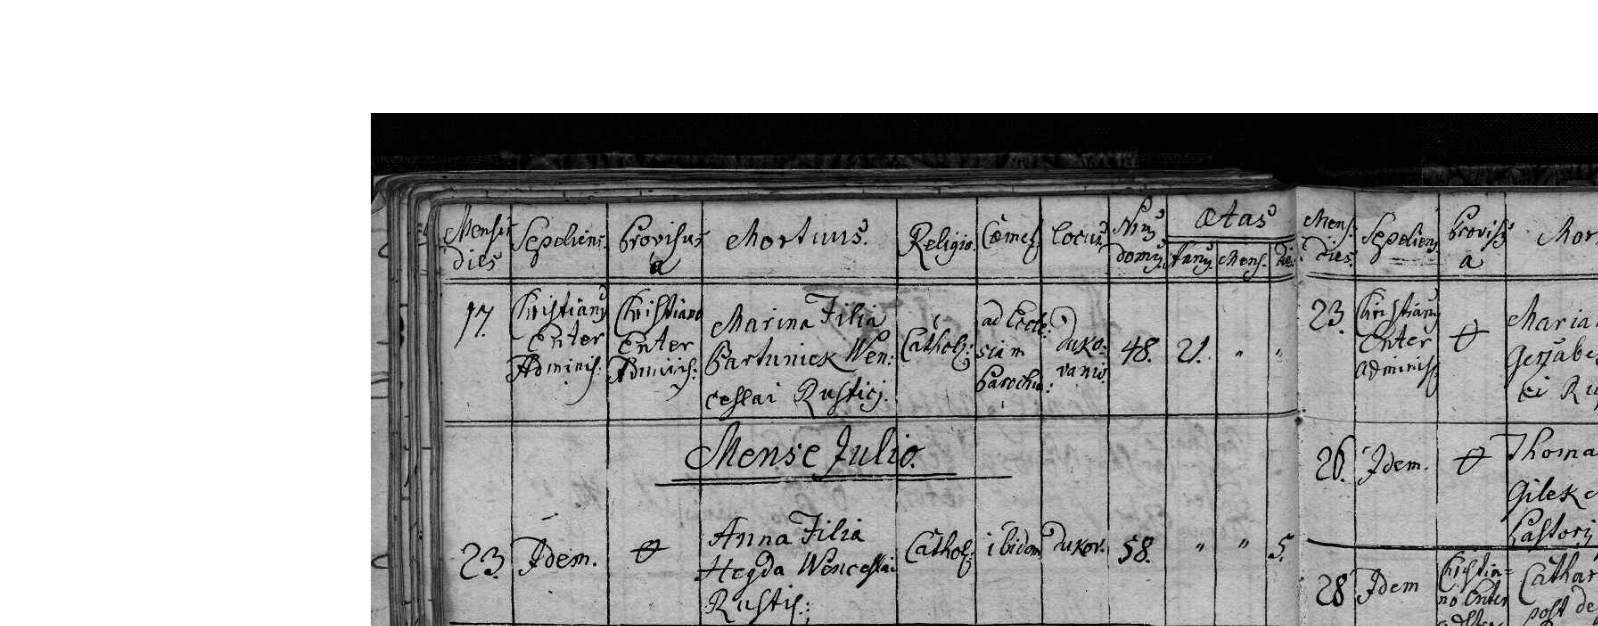 Mensis dies
Sepeliens.
Provisus a
Mortuus.
Religio.
Cœmet:
Locus.
Nrus domus.
Ætas
Annus.
Mens.
Die:
17.
Christianus
Enter
Adminis:
Christiano
Enter
Adminis:
Marina Filia
Bartuniek Wen:
ceslai Rustici.
Cathol:
ad Eccle:
siam
Parochia:
Duko:
vanis.
48.
21.
"
"
Mense Julio.
23.
Idem.
Anna Filia
Hegda Wenceslai
Rustic:
Cathol:
ibidem
Dukov.
58.
"
"
5.
Mens:
dies.
Sepeliens
Provisus
a
Mor
23.
Christianus
Enter
Adminis
Maria
26.
Idem.
Thoma
Gilek
Pastoris
28
Idem
Christia=
no Enter
Cathar
post de